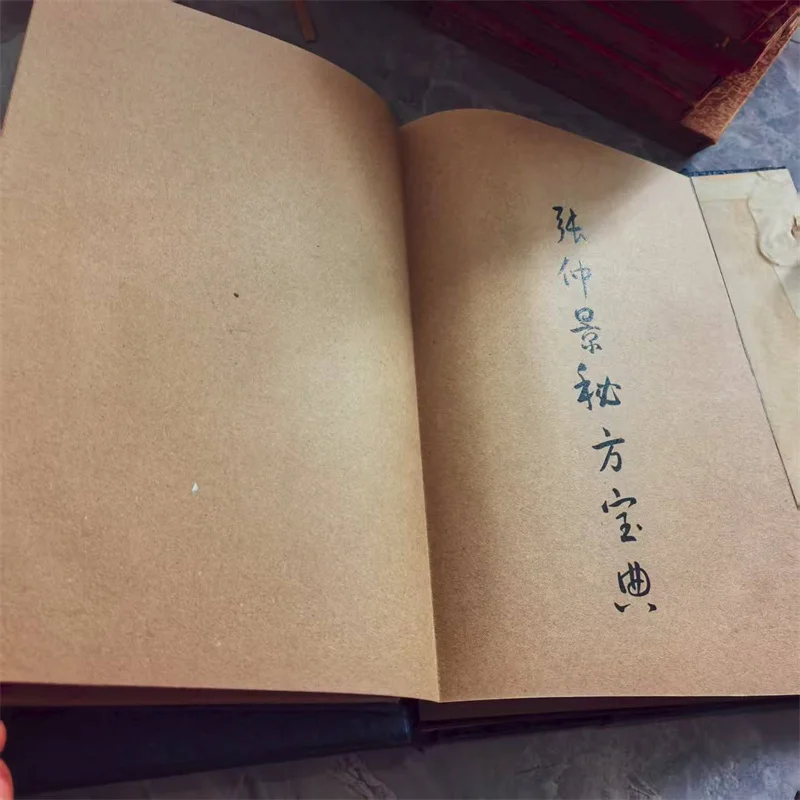 张仲景秘方宝典